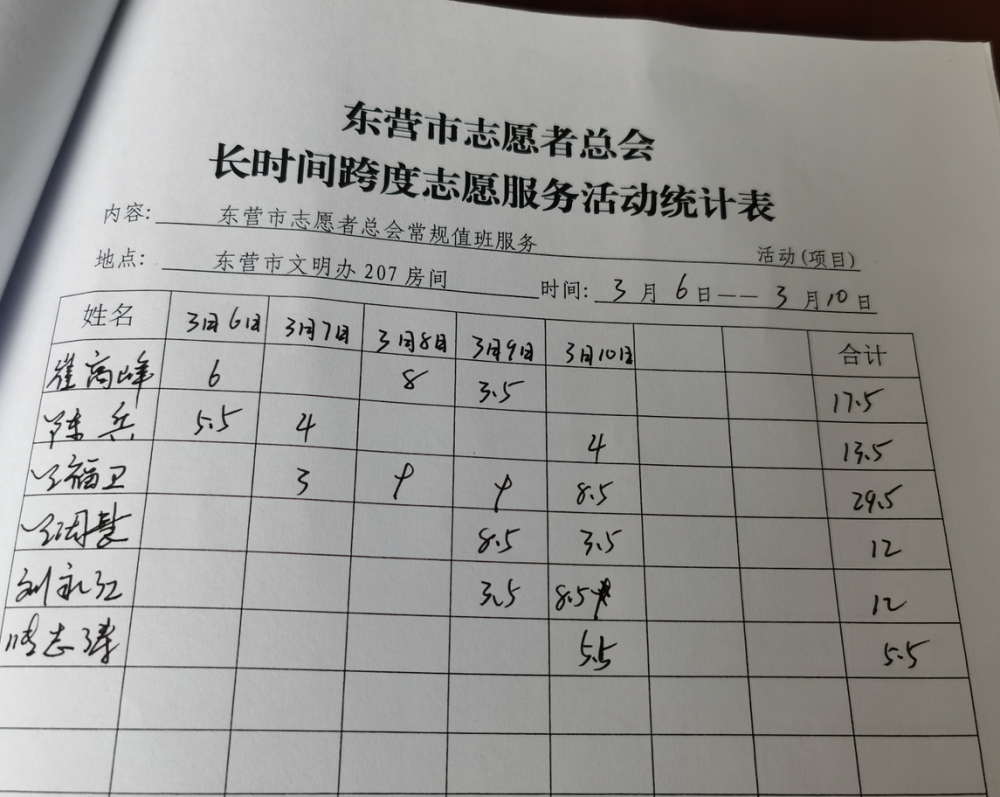 东营市志愿者总会
长时间跨度志愿服务活动统计表
内容: 东营市志愿者总会常规值班服务 活动(项目)
地点: 东营市文明办207房间 时间: 3月6日——3月10日
姓名 3月6日 3月7日 3月8日 3月9日 3月10日 合计
崔高峰 6 8 3.5 17.5
陈兵 5.5 4 4 13.5
王福卫 3 9 9 8.5 29.5
8.5 3.5 12
刘永红 3.5 8.5 12
志涛 5.5 5.5